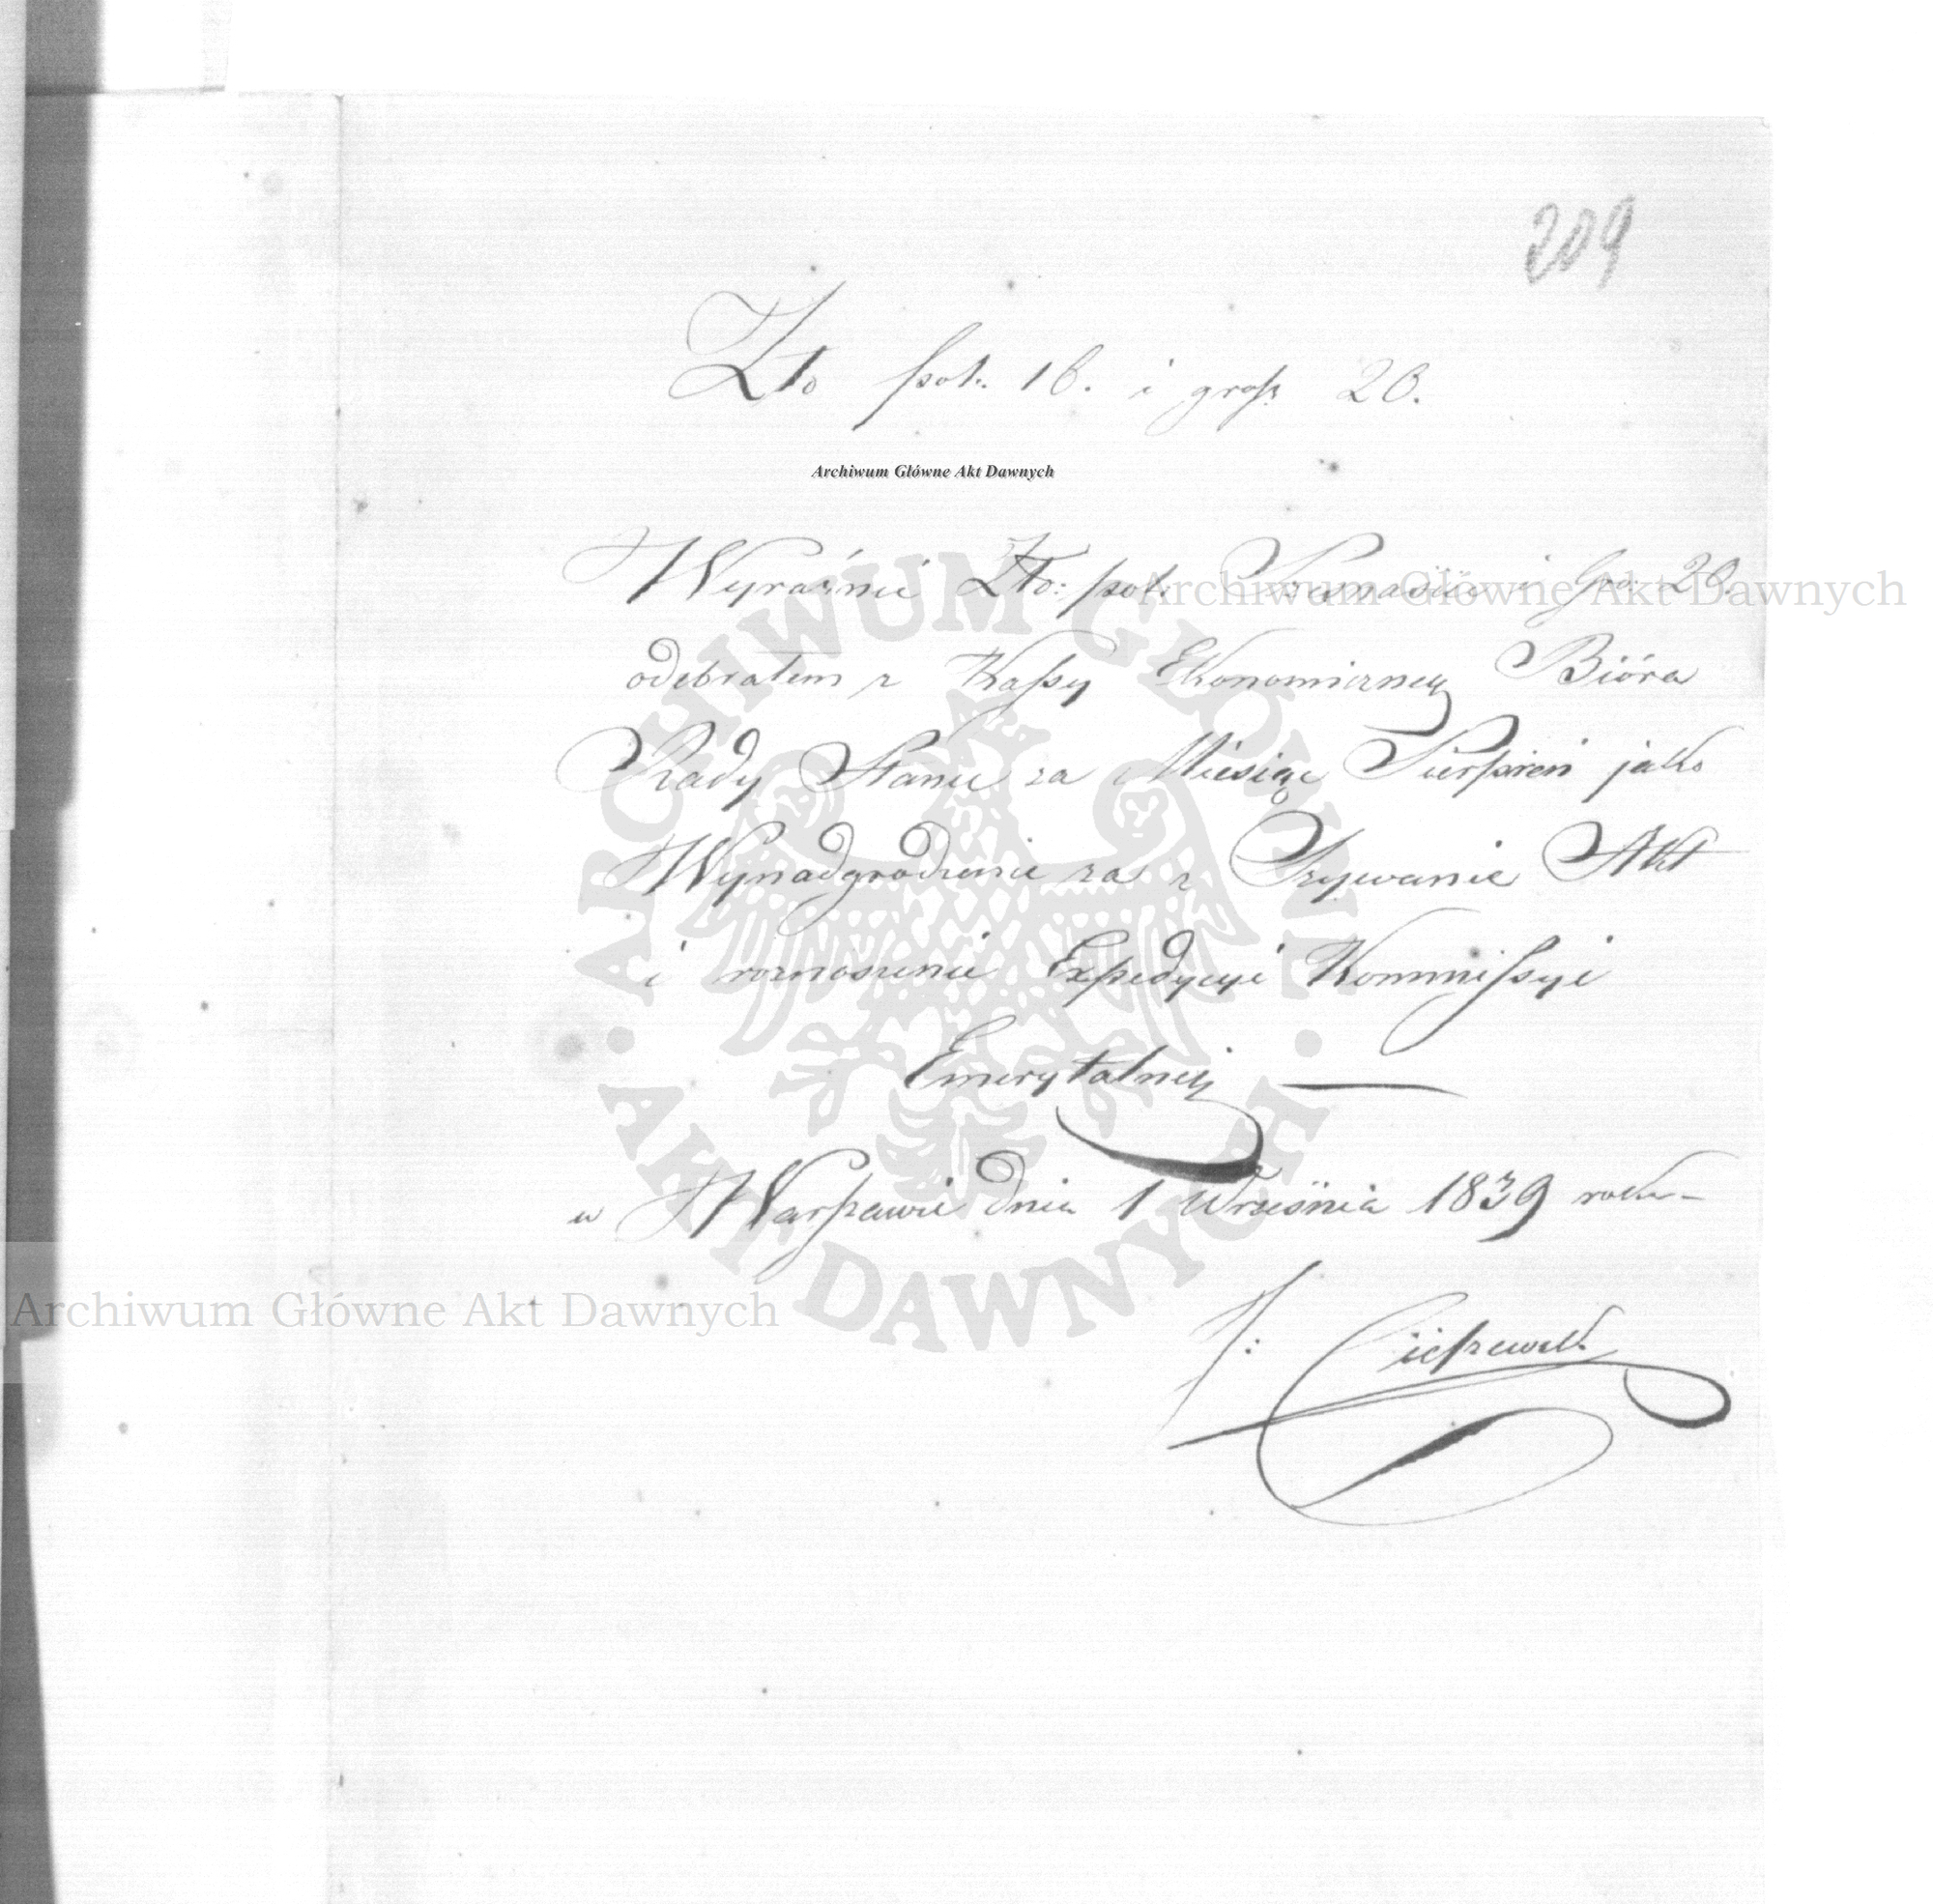 209
Zło pol. 16. i grosz 20.
Archiwum Główne Akt Dawnych
Wyraźnie Zło: pol. Szesnaście i Gro: 20.
Archiwum Główne Akt Dawnych
odebrałem z Kassy Ekonomiczney Bióra
Rady Stanu za Miesiąc Sierpień jako
Wynadgrodzenie za z Szywanie Akt
i roznoszenie Expedycyi Kommissyi
Emerytalney
w Warszawie dnia 1 Wrzesnia 1839 roku
Archiwum Główne Akt Dawnych
ARCHIWUM GŁÓWNE · AKT DAWNYCH ·